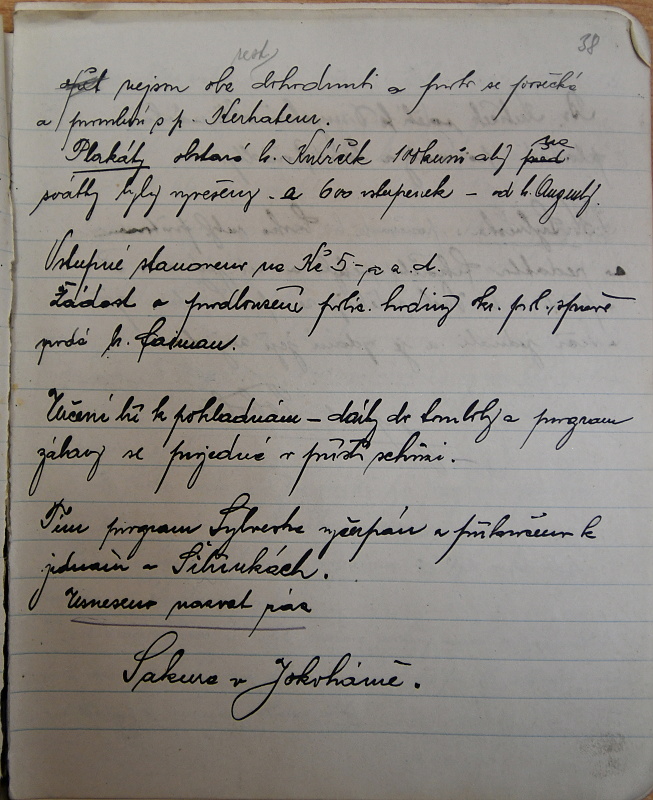 38
nejsou obě dohodnuti a proto se posečká
a promluví s p. Kerhatem.
Plakáty obstará b. Kubíček 100 kusů aby
svátky byly vyvěšeny. a 600 vstupenek – od b. Augusty.
Vstupné stanoveno na Kč 5 - p. a. d.
Žádost o prodloužení polic. hodiny okr. pol. správě
podá b. Caiman.
Určení bří k pokladnám – dary do tomboly a program
zábavy se projedná v příští schůzi.
Tím program Sylvestra vyčerpán a přikročeno k
jednání o Šibřinkách.
Usneseno nazvat je
Sakura v Jokohámě.